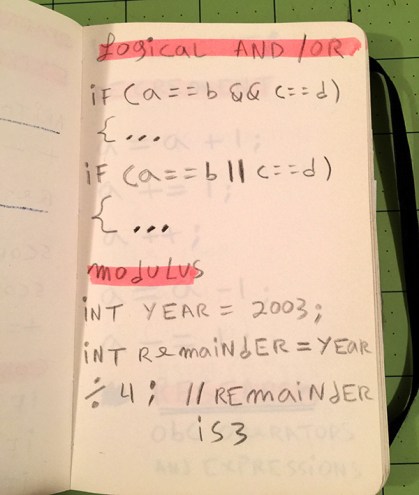 Logical AND/OR
iF (a==b && c==d)
{ ...
iF (a==b || c==d)
{ ...
modulus
INT YEAR = 2003;
iNT REmaiNdER = YEAR
÷ 4; // REmaiNdER
is 3